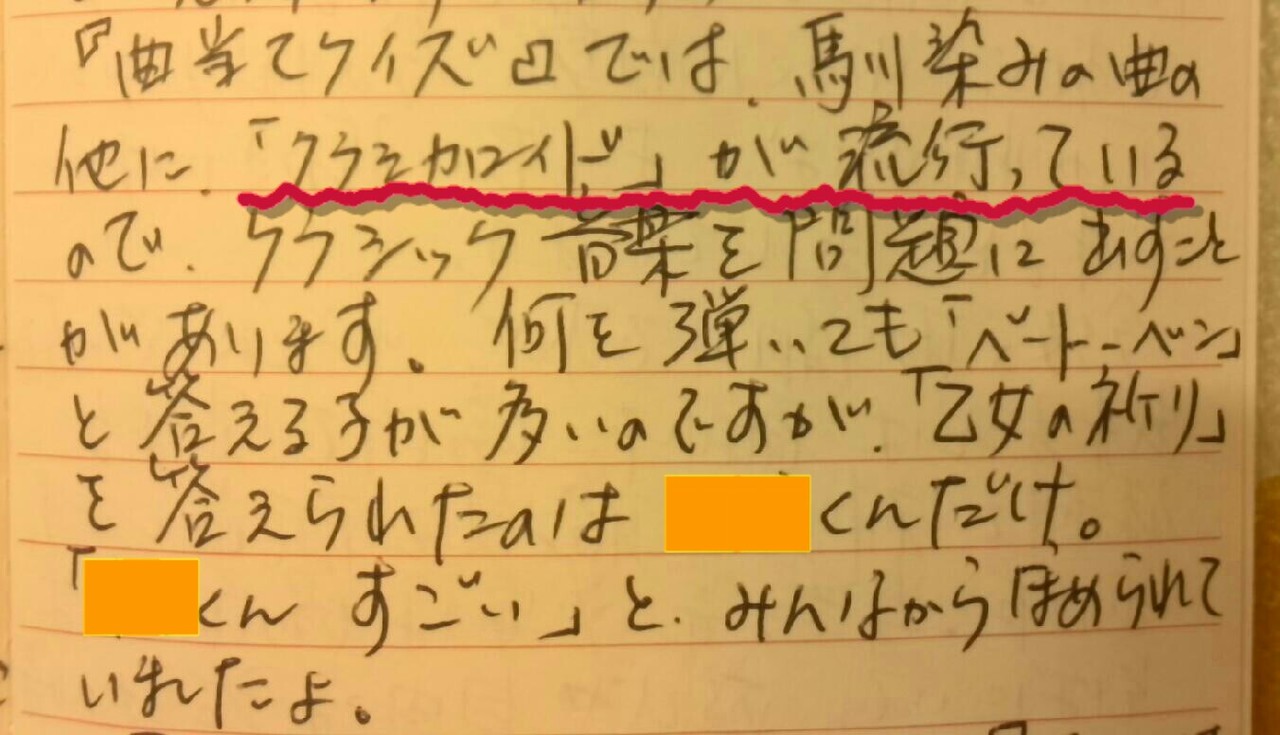 『曲当てクイズ』では、馬川染みの曲の
他に、「クラシカロイド」が流行っている
ので、クラシック音楽を問題に出すこと
があります。何を弾いても「ベートーベン」
と答える子が多いのですが、「乙女の祈り」
を答えられたのは くんだけ。
「 くん すごい」と、みんなからほめられて
いましたよ。